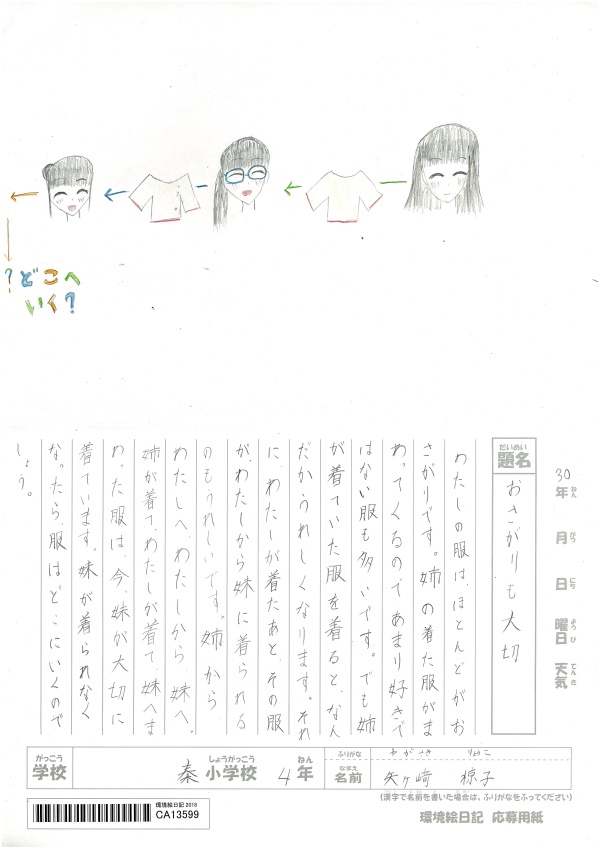 ?どこへ
いく?
30
年 ねん
月 がつ
日 にち
曜日 ようび
天気 てんき
題名 だいめい
おさがりも大切
わたしの服は、ほとんどがお
さがりです。姉の着た服がま
わってくるのであまり好きで
はない服も多いです。でも姉
が着ていた服を着ると、なん
だかうれしくなります。それ
に、わたしが着たあと、その服
が、わたしから妹に着られる
のもうれしいです。姉から
わたしへ、わたしから、妹へ。
姉が着て、わたしが着て、妹へま
わった服は、今、妹が大切に
着ています。妹が着られなく
なったら、服はどこにいくので
しょう。
学校 がっこう
秦 小学校 しょうがっこう 4年 ねん
ふりがな やがさき りょうこ
名前 なまえ 矢ヶ崎 椋子
(漢字で名前を書いた場合は、ふりがなをふってください)
環境絵日記 2018
CA13599
環境絵日記 応募用紙